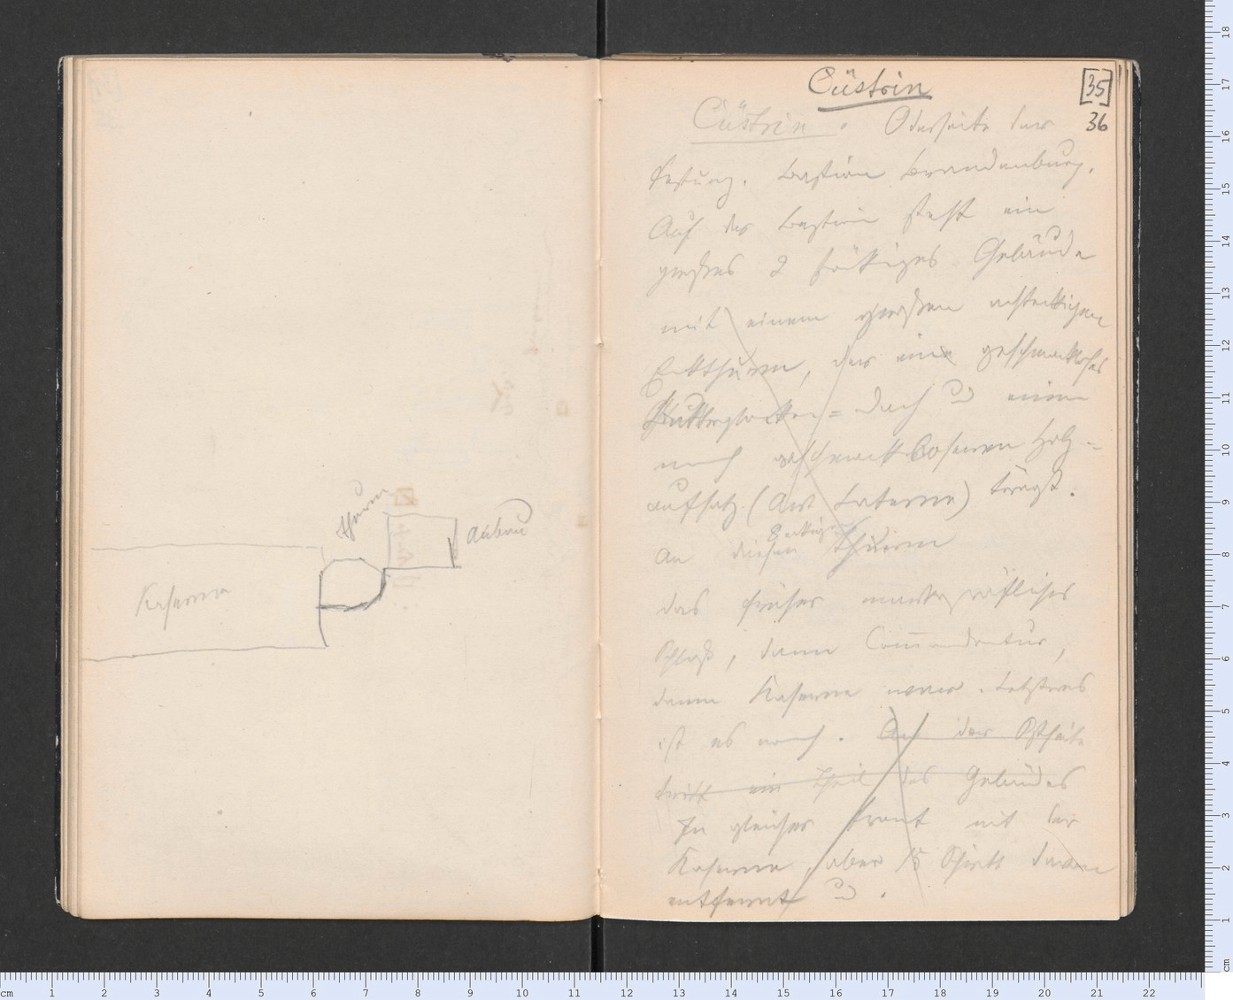 Thurm
Anbau
Kaserne
Cüstrin
[35]
36
Cüstrin. Oderseite der
Festung. Bastion Brandenburg.
Auf der Bastion steht ein
großes 2 stöckiges Gebäude
mit einem großen achteckigen
Eckthurm, der ein geschmackloses
Dach u einen
noch geschmackloseren Holz-
aufsatz (Art Laterne) trägt.
An diesen 8eckigen Thurm
das früher markgräfliches
Schloß, dann Commandantur,
dann Kaserne war. Letztres
ist es noch. Auf der Ostseite
tritt ein Theil des Gebäudes
In gleicher Front mit der
Kaserne, aber 15 Schritt davon
entfernt u.